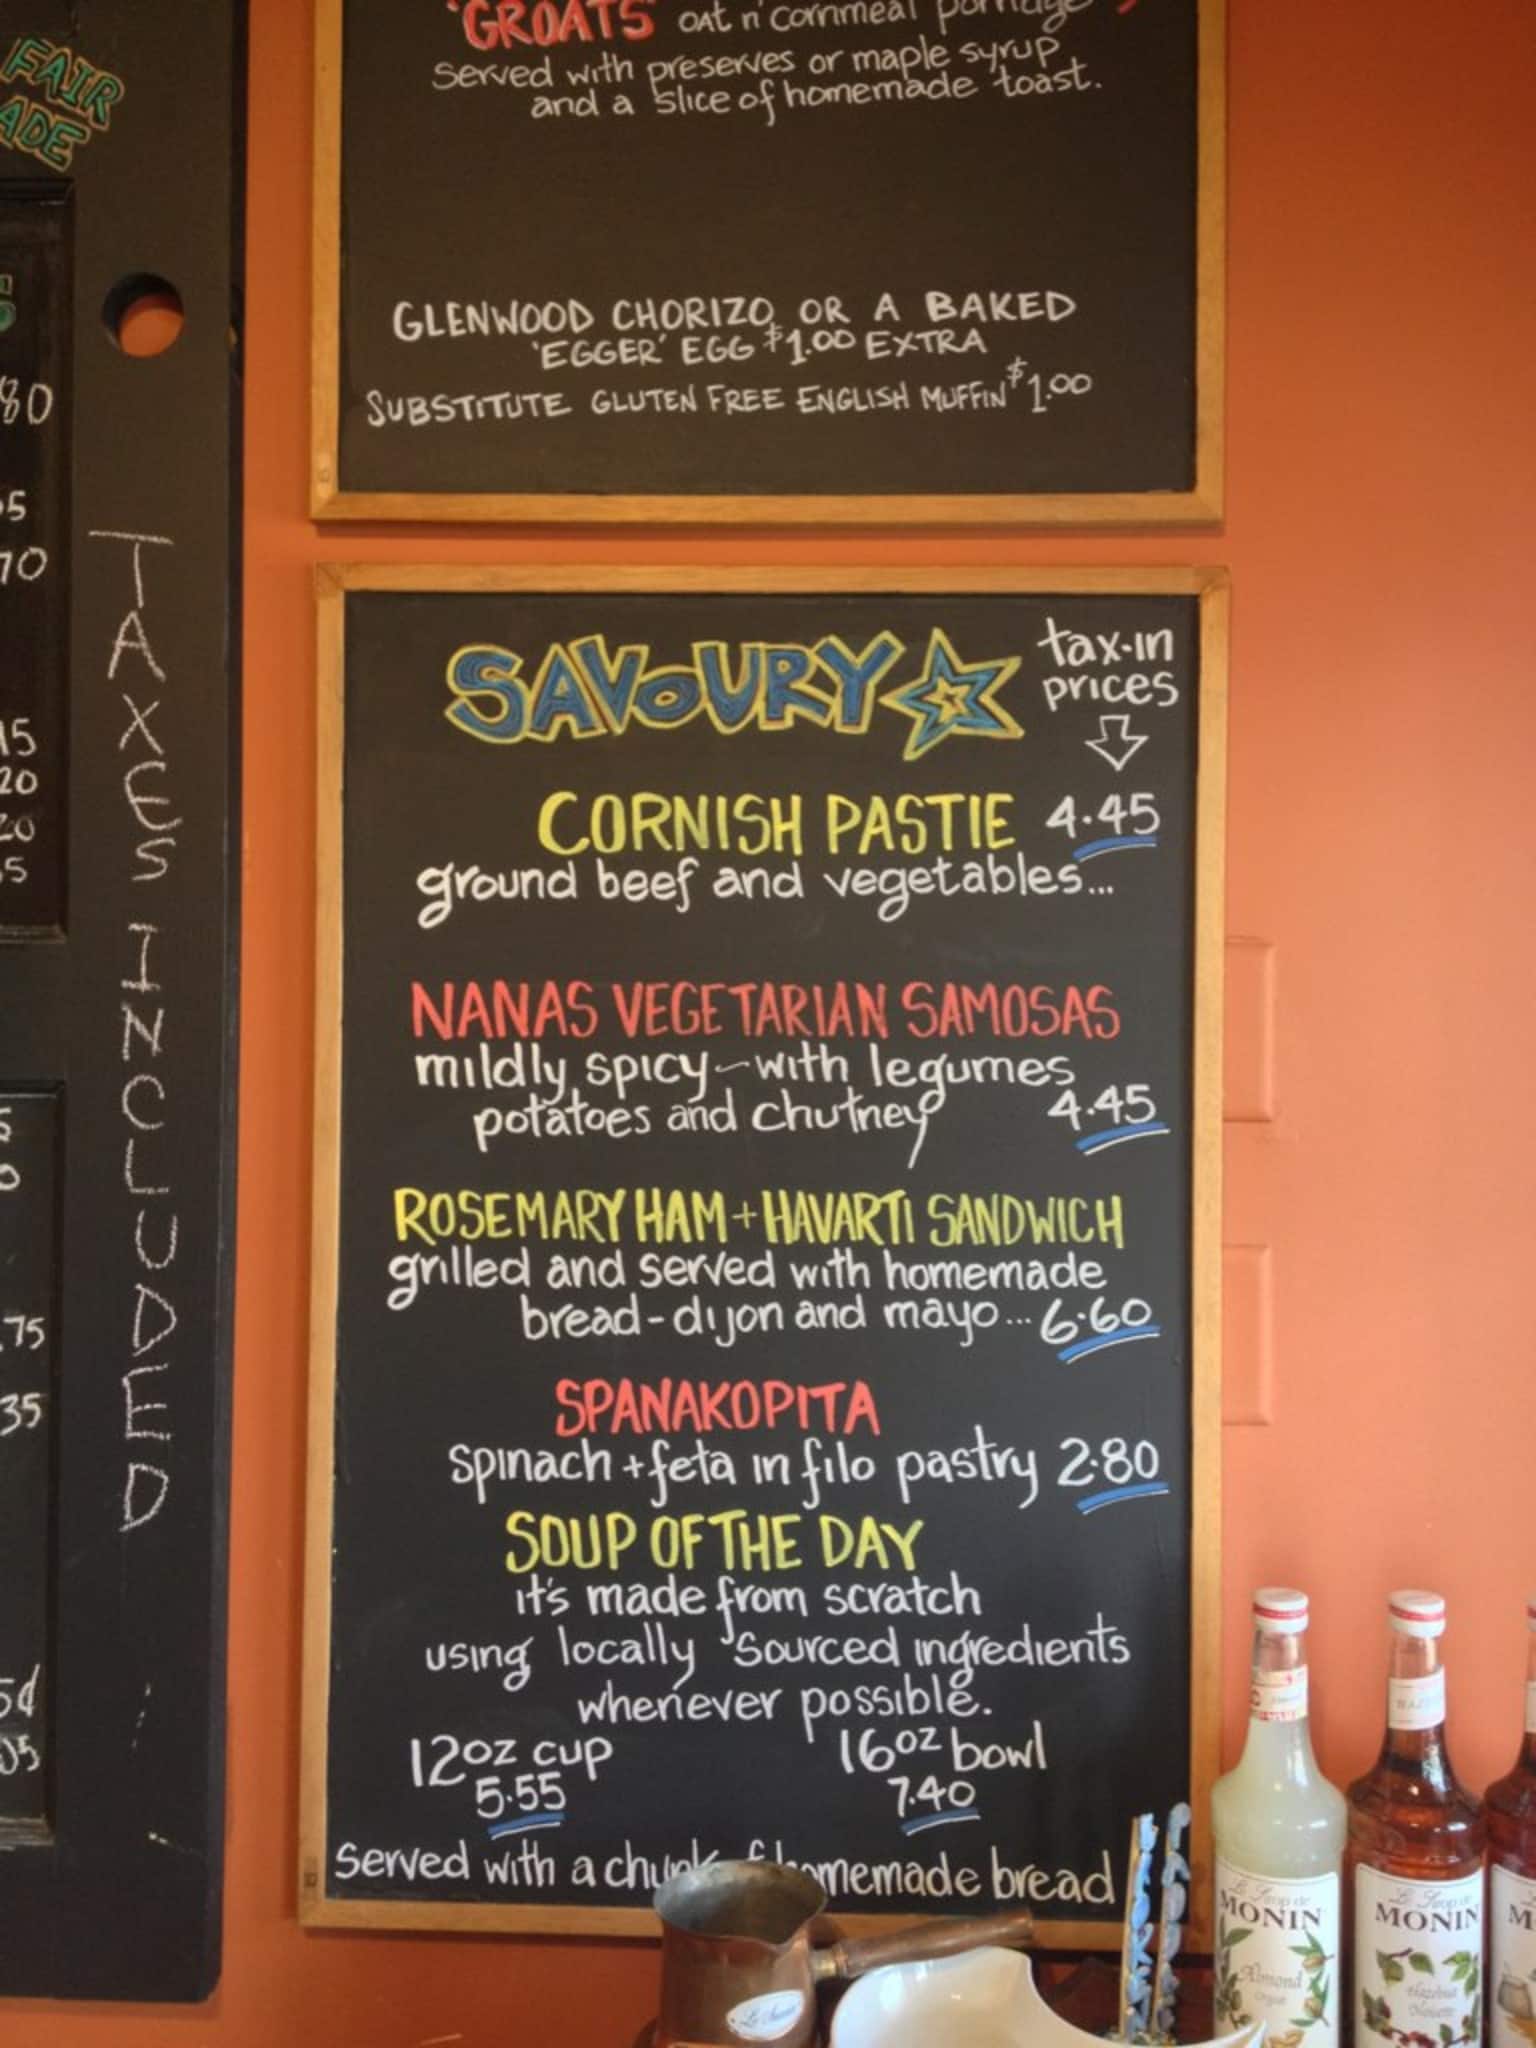 FAIR
'GROATS' OAT n' cornmeal porridge
served with preserves or maple syrup
and a slice of homemade toast.
GLENWOOD CHORIZO OR A BAKED
'EGGER' EGG $1.00 EXTRA
SUBSTITUTE GLUTEN FREE ENGLISH MUFFIN $1.00
TAXES INCLUDED
SAVOURY
tax-in
prices
CORNISH PASTIE 4.45
ground beef and vegetables...
NANAS VEGETARIAN SAMOSAS
mildly spicy - with legumes
potatoes and chutney 4.45
ROSEMARY HAM + HAVARTI SANDWICH
grilled and served with homemade
bread - dijon and mayo... 6.60
SPANAKOPITA
spinach + feta in filo pastry 2.80
SOUP OF THE DAY
it's made from scratch
using locally sourced ingredients
whenever possible.
12oz cup 16oz bowl
5.55 7.40
served with a chunk of homemade bread
MONIN
Almond
MONIN
Hazelnut
Noisette